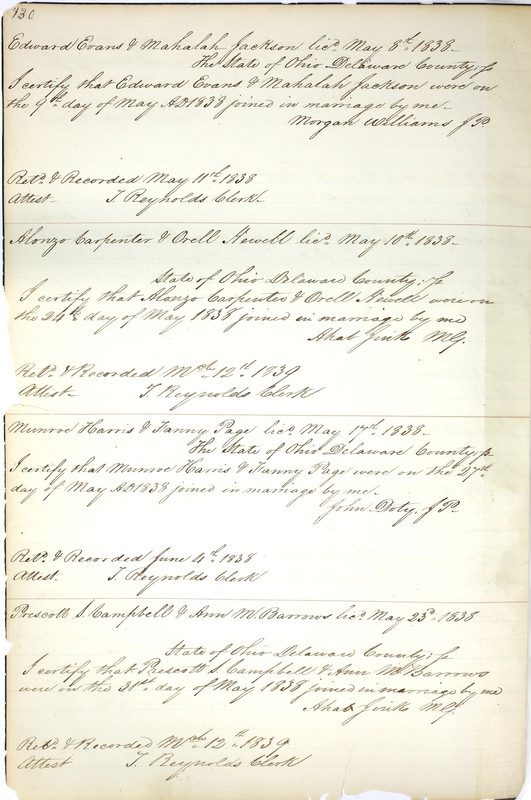 130
Edward Evans & Mahalah Jackson licd. May 8th. 1838-
The State of Ohio Delaware County: ss
I certify that Edward Evans & Mahalah Jackson were on
the 9th day of May AD 1838 joined in marriage by me-
Morgan Williams J P.
Retd. & Recorded May 11th. 1838
Attest- T Reynolds Clerk-
Alonzo Carpenter & Orell Newell licd. May 10th. 1838-
State of Ohio Delaware County: ss
I certify that Alonzo Carpenter & Orell Newell were on
the 24th. day of May 1838 joined in marriage by me
Ahab Jinks MG.
Retd. & Recorded Mch. 12th. 1839
Attest- T. Reynolds Clerk
Munroe Harris & Fanny Page licd. May 17th. 1838-
The State of Ohio Delaware County: ss
I certify that Munroe Harris & Fanny Page were on the 27th
day of May AD 1838 joined in marriage by me-
John Doty. J P-
Retd. & Recorded June 4th. 1838
Attest. T. Reynolds Clerk
Prescott S. Campbell & Ann M. Barrows licd. May 23d. 1838
State of Ohio Delaware County: ss
I certify that Prescott S. Campbell & Ann M Barrows
were on the 31st. day of May 1838 joined in marriage by me
Ahab Jinks MG.
Retd. & Recorded Mch 12th. 1839
Attest T. Reynolds Clerk